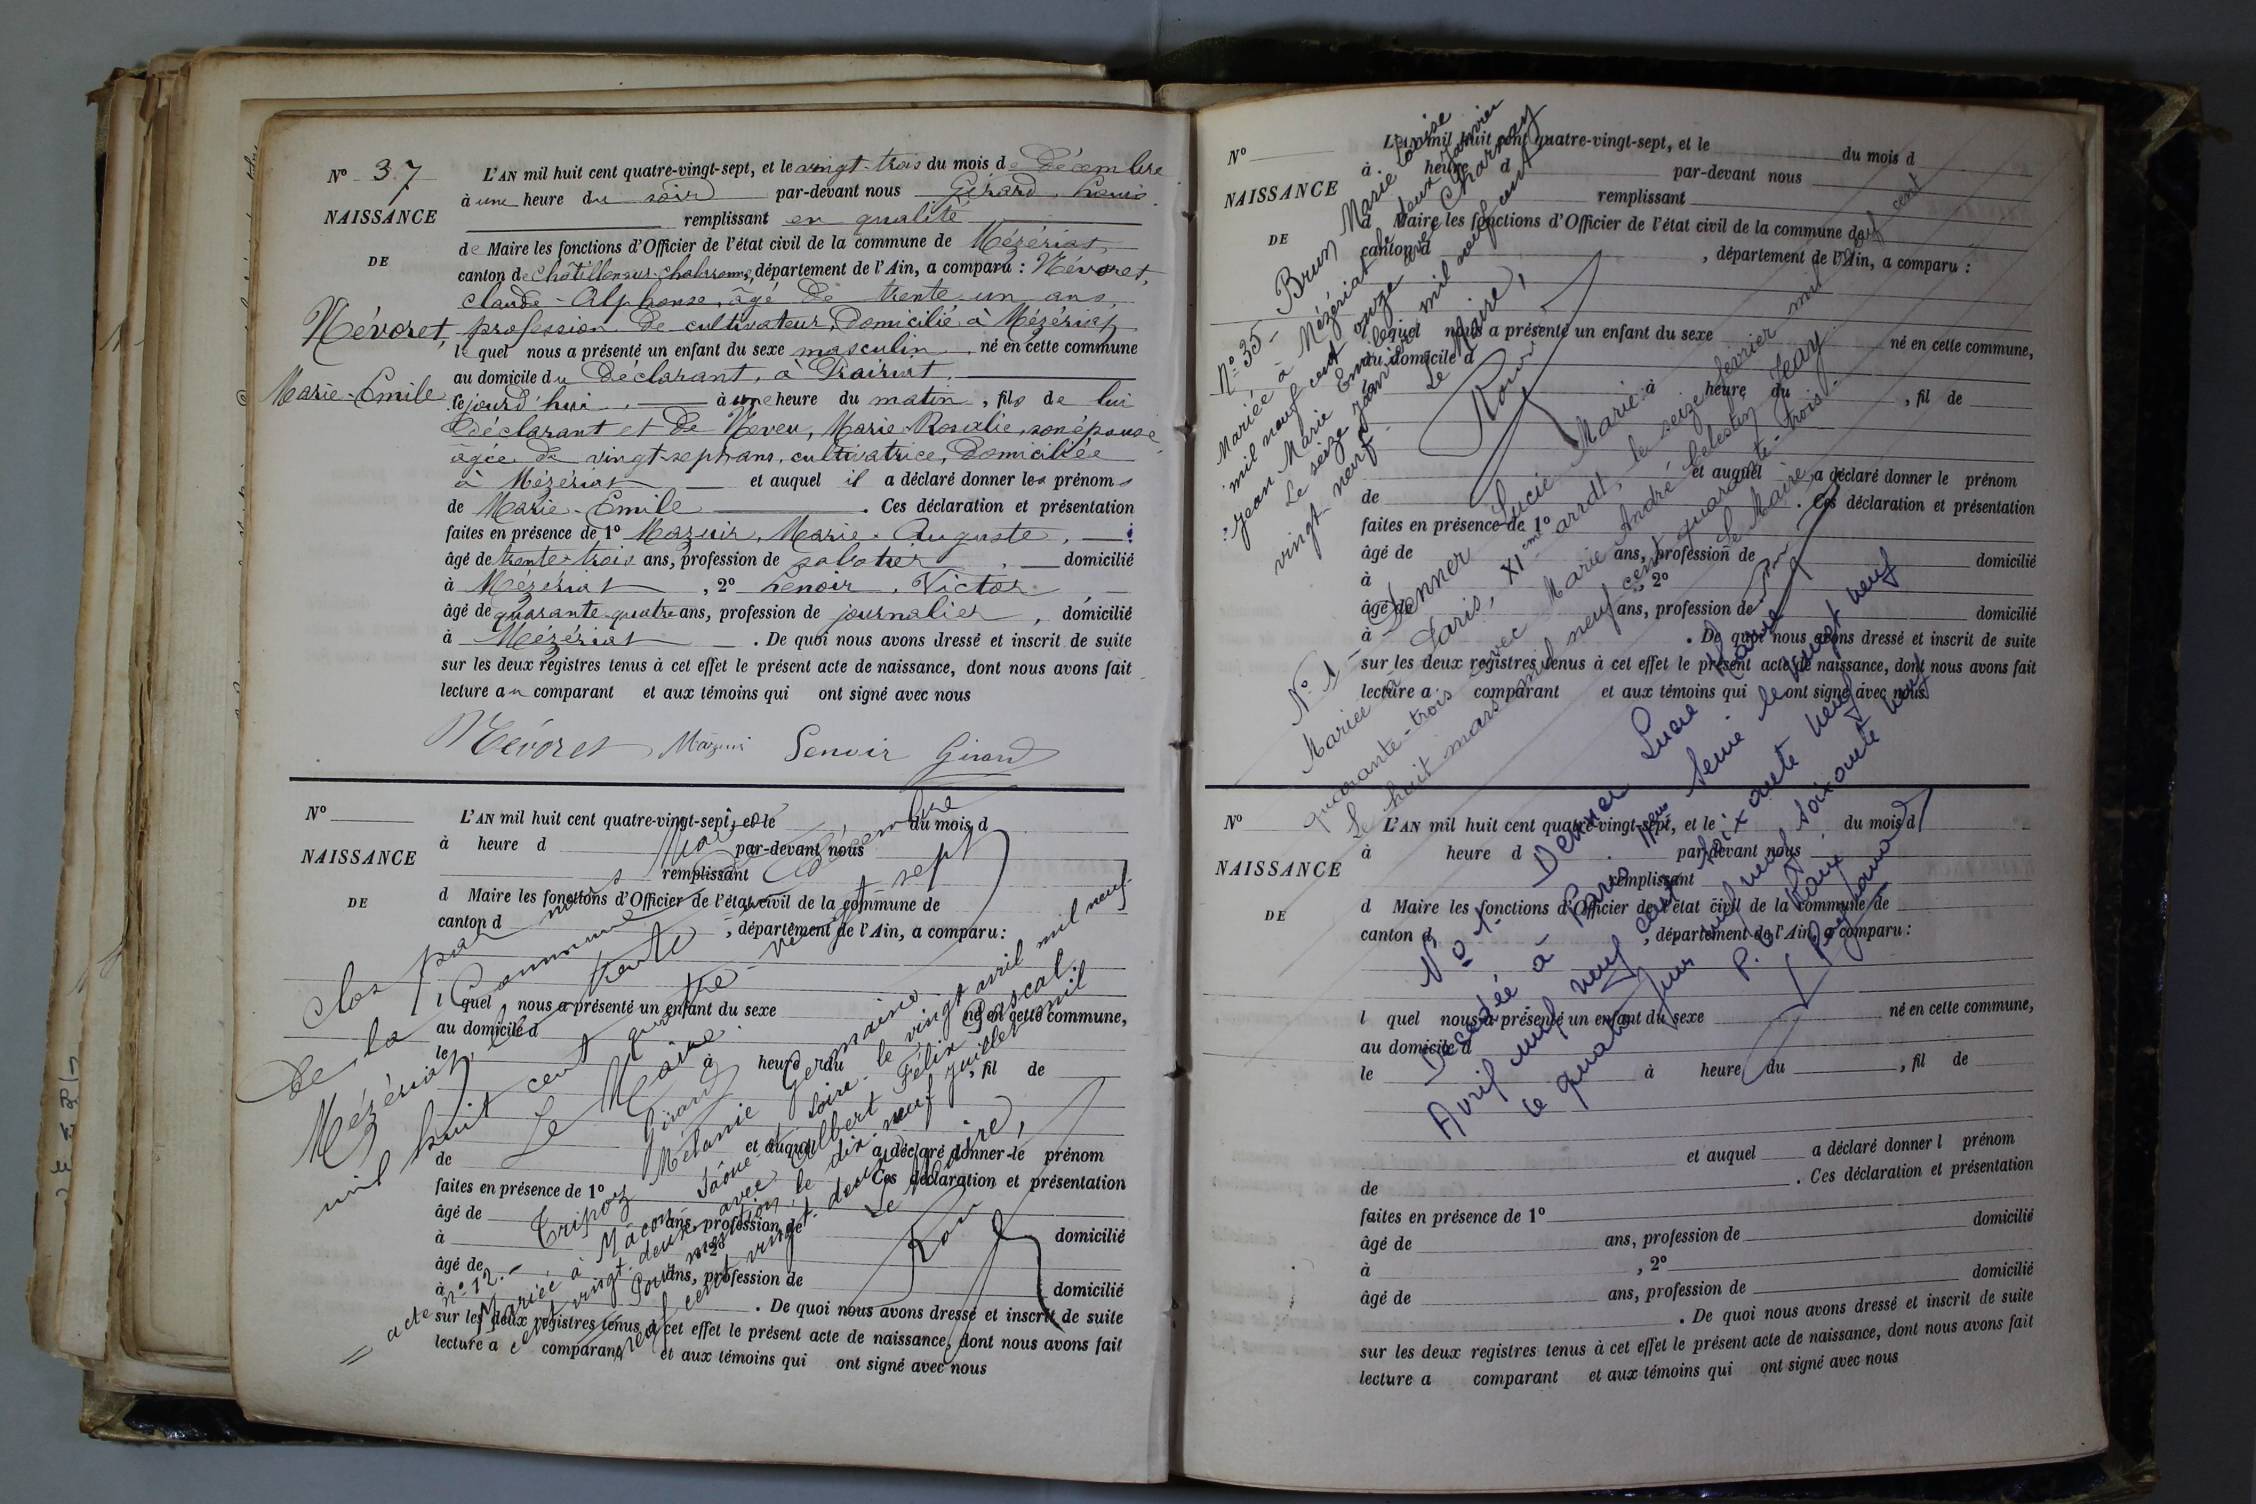 N° 37
NAISSANCE
DE
Névoret,
Marie-Emile
L'AN mil huit cent quatre-vingt-sept, et le vingt-trois du mois de Décembre
à une heure du soir par-devant nous Girard, Louis
remplissant en qualité
de Maire les fonctions d'Officier de l'état civil de la commune de Mézériat,
canton de Châtillon-sur-Chalaronne, département de l'Ain, a comparu : Névoret,
Claude-Alphonse, âgé de trente-un ans,
profession de cultivateur, domicilié à Mézériat
lequel nous a présenté un enfant du sexe masculin, né en cette commune
au domicile du déclarant, à
cejourd'hui, à une heure du matin, fils de lui
déclarant et de Neveu, Marie-Rosalie, son épouse
agée de vingt-sept ans, cultivatrice, domiciliée
à Mézériat et auquel il a déclaré donner les prénoms
de Marie-Emile. Ces déclaration et présentation
faites en présence de 1° Mazuir, Marie-Auguste,
âgé de trente-trois ans, profession de sabotier, domicilié
à Mézériat, 2° Lenoir, Victor
âgé de quarante-quatre ans, profession de journalier, domicilié
à Mézériat. De quoi nous avons dressé et inscrit de suite
sur les deux registres tenus à cet effet le présent acte de naissance, dont nous avons fait
lecture au comparant et aux témoins qui ont signé avec nous
Névoret Mazuir Lenoir Girard
N°
NAISSANCE
DE
L'AN mil huit cent quatre-vingt-sept, et le du mois d
à heure d par-devant nous
remplissant
d Maire les fonctions d'Officier de l'état civil de la commune de
canton d , département de l'Ain, a comparu :
l quel nous a présenté un enfant du sexe né en cette commune,
au domicile d
le à heure du , fil de
et auquel a déclaré donner le prénom
de Ces déclaration et présentation
faites en présence de 1°
âgé de ans, profession de
à 2° domicilié
âgé de ans, profession de
à domicilié
. De quoi nous avons dressé et inscrit de suite
sur les deux registres tenus à cet effet le présent acte de naissance, dont nous avons fait
lecture a comparant et aux témoins qui ont signé avec nous
Clos par nous Maire
de la Commune de
Mézériat, le trente Décembre
mil huit cent quatre-vingt sept
Le Maire
Girard
acte n° 12.- Tripoz Mélanie Germaine
Mariée à Mâcon Saône et Loire le vingt avril mil neuf
cent vingt deux avec Albert Félix Pascal
Pour mention, le dix-neuf juillet mil
neuf cent vingt-deux
Le Maire,
N°
NAISSANCE
DE
L'AN mil huit cent quatre-vingt-sept, et le du mois d
à heure d par-devant nous
remplissant
d Maire les fonctions d'Officier de l'état civil de la commune de
canton d , département de l'Ain, a comparu :
lequel nous a présenté un enfant du sexe né en cette commune,
au domicile d
à heure du , fil de
et auquel a déclaré donner le prénom
de . Ces déclaration et présentation
faites en présence de 1°
âgé de ans, profession de domicilié
à , 2°
âgé de ans, profession de domicilié
à . De quoi nous avons dressé et inscrit de suite
sur les deux registres tenus à cet effet le présent acte de naissance, dont nous avons fait
lecture a comparant et aux témoins qui ont signé avec nous
N° 35 - Brun Marie Louise
Mariée à Mézériat le deux janvier
mil neuf cent onze avec Charnay
Jean Marie Emile
Le seize janvier mil neuf cent
vingt neuf.
Le Maire,
N° 1 - Denner Lucie Marie
Mariée à Paris, XIeme arrdt, le seize février mil neuf cent
quarante-trois avec Marie André Célestin Jeay
Le huit mars mil neuf cent quarante-trois.
Le Maire,
N° 1- Denner Lucie Marie
Décédée à Paris Seine le vingt neuf
Avril mil neuf cent soixante neuf
le quatre Juin mil neuf cent soixante neuf
N°
NAISSANCE
DE
L'AN mil huit cent quatre-vingt-sept, et le du mois d
à heure d par-devant nous
remplissant
d Maire les fonctions d'Officier de l'état civil de la commune de
canton d , département de l'Ain, a comparu :
l quel nous a présenté un enfant du sexe né en cette commune,
au domicile d
le à heure du , fil de
et auquel a déclaré donner l prénom
de . Ces déclaration et présentation
faites en présence de 1°
âgé de ans, profession de domicilié
à , 2°
âgé de ans, profession de domicilié
. De quoi nous avons dressé et inscrit de suite
sur les deux registres tenus à cet effet le présent acte de naissance, dont nous avons fait
lecture a comparant et aux témoins qui ont signé avec nous